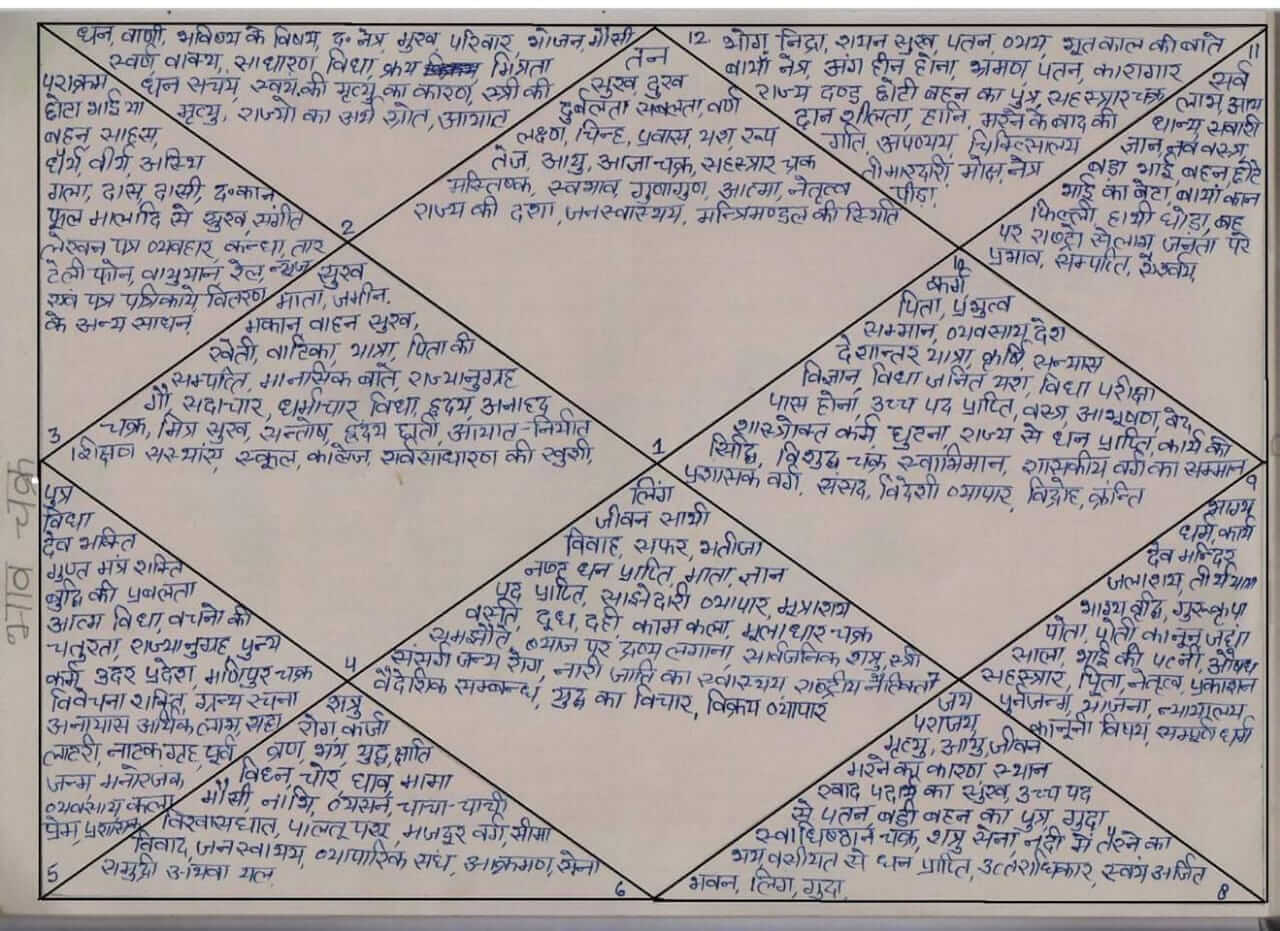 धन, वाणी, भविष्य के विषय, द॰ नेत्र, मुख, परिवार, भोजन, मौसी
स्वर्ण वाक्य, साधारण विधा, क्रय मित्रता
धन सचंय, स्वयं की मृत्यु का कारण, स्त्री की
मृत्यु, राज्यो का अर्थ स्रोत, आयात
2
तन
सुख दुख
दुर्बलता सबलता, वर्ण
लक्षण, चिन्ह, प्रवास, यश, रूप
तेज, आयु, आज्ञाचक्र, सहस्त्रार चक्र
मस्तिष्क, स्वभाव, गुणागुण, आत्मा, नेतृत्व
राज्य की दशा, जनस्वास्थय, मन्त्रिमण्डल की स्थिति
1
12. भोग, निद्रा, शयन सुख, पतन, व्यय, भूतकाल की बाते
बायाँ नेत्र, अंग हीन होना, भ्रमण, पतन, कारागार
राज्य दण्ड, छोटी बहन का पुत्र, सहस्त्रार चक्र
दान शीलता, हानि, मरने के बाद की
गति, अपव्यय, चिकित्सालय
तीमारदारी, मोक्ष, नेत्र
पीड़ा
11
सर्व
लाभ, आय
धान्य, सवारी
जान, नव वस्त्र,
बडा भाई, बहन, छोटे
भाई का बेटा, बायां कान
पिल्ली, हाथी घोडा, बहू
पर राष्ट्रो से लाभ, जनता पर
प्रभाव, सम्पत्ति, ऐश्वर्य,
पराक्रम
छोटा भाई या
बहन, साहस,
धैर्य, वीर्य, अस्थि
गला, दास, दासी, द॰ कान
फूल मालादि से सुख, संगीत
लेखन, पत्र व्यवहार, कन्धा, तार
टेलीफोन, वायुयान, रेल, न्यूज
एवं पत्र पत्रिकाये, वितरण
के अन्य साधन,
3
सुख
माता, जमीन,
मकान, वाहन सुख,
खेती, वाटिका, यात्रा, पिता की
सम्पत्ति, मानसिक बाते, राज्यानुग्रह
गौ, सदाचार, धर्माचार, विधा, हृदय, अनाहद
चक्र, मित्र सुख, सन्तोष, हृदय, छाती, आयात-निर्यात
शिक्षण सस्थाएं, स्कूल, कालेज, सर्वसाधारण की खुशी,
4
10
कर्म
पिता, प्रभुत्व
सम्मान, व्यवसाय, देश
देशान्तर यात्रा, कृषि, सन्यास
विज्ञान, विधा जनित यश, विधा परीक्षा
पास होना, उच्च पद प्राप्ति, वस्त्र, आभूषण, वेद
शास्त्रोक्त कर्म, घुटना, राज्य से धन प्राप्ति, कार्य की
सिद्धि, विशुद्ध चक्र, स्वाभिमान, शासकीय वर्ग का सम्मान
प्रशासक वर्ग, संसद, विदेशी व्यापार, विद्रोह, क्रान्ति
भाव चक्र
पुत्र
विधा
देव भक्ति
गुप्त मंत्र शक्ति
बुद्धि की प्रबलता
आत्म विधा, वचनो की
चतुरता, राज्यानुग्रह, पुन्य
कर्म, उदर प्रदेश, मणिपुर चक्र
विवेचना शक्ति, ग्रन्थ रचना
अनायास आर्थिक लाभ, सट्टा
लाटरी, नाटक गृह, पूर्व
जन्म, मनोरंजक,
व्यवसाय, कला
प्रेम, प्रशासक
5
लिंग
जीवन साथी
विवाह, सफर, भतीजा
नष्ट धन प्राप्ति, माता, ज्ञान
पद प्राप्ति, साझेदारी व्यापार, मूत्राशय
वस्ति, दूध, दही, काम कला, मूलाधार चक्र
समझौते, ब्याज पर द्रव्य लगाना, सार्वजनिक शत्रु, स्त्री
संसर्ग जन्य रोग, नारी जाति का स्वास्थय, राष्ट्रीय नैतिकता
वैदेशिक सम्बन्ध, युद्ध का विचार, विक्रय व्यापार
7
9
भाग्य
धर्म, कार्य
देव मन्दिर
जलाशय, तीर्थ यात्रा
भाग्य वृद्धि, गुरु कृपा
पोता, पोती, कानून, जंघा
साला, भाई की पत्नी, औषध
सहस्त्रार, पिता, नेतृत्व, प्रकाशन
पुर्नजन्म, योजना, न्यायालय
कानूनी विषय, सम्पूर्ण धर्म
शत्रु
रोग, कर्जा
व्रण, भय, युद्ध, क्षति
विघ्न, चोर, घाव, मामा
मौसी, नाभि, व्यसन, चाचा-चाची
विश्वासघात, पालतू पशु, मजदूर वर्ग, सीमा
विवाद, जन स्वास्थय, व्यापारिक संघ, आक्रमण, सेना
समुद्री अथवा थल,
6
जय
पराजय,
मृत्यु, आयु, जीवन
मरने का कारण, स्थान
स्वाद पदार्थ का सुख, उच्च पद
से पतन, बडी बहन का पुत्र, गुदा
स्वाधिष्ठान चक्र, शत्रु सेना, नदी मे तैरने का
भय, वसीयत से धन प्राप्ति, उत्तराधिकार, स्वयं अर्जित
भवन, लिंग, गुदा,
8